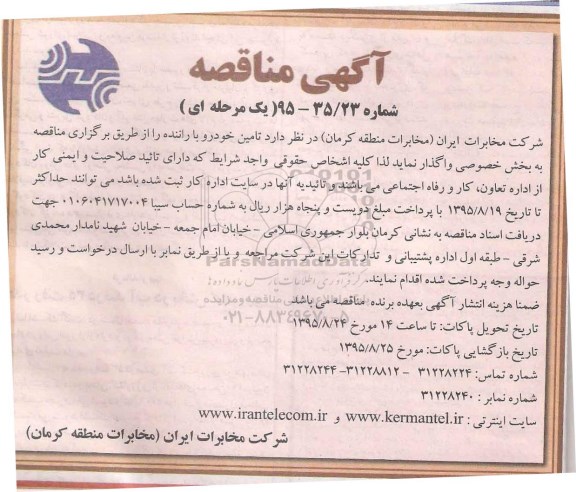 آگهی مناقصه
شماره ۳۵/۲۳ - ۹۵ ( یک مرحله ای )
شرکت مخابرات ایران (مخابرات منطقه کرمان) در نظر دارد تامین خودرو با راننده را از طریق برگزاری مناقصه
به بخش خصوصی واگذار نماید لذا کلیه اشخاص حقوقی واجد شرایط که دارای تائید صلاحیت و ایمنی کار
از اداره تعاون، کار و رفاه اجتماعی می باشند و تائیدیه آنها در سایت اداره کار ثبت شده باشد می توانند حداکثر
تا تاریخ ۱۳۹۵/۸/۱۹ با پرداخت مبلغ دویست و پنجاه هزار ریال به شماره حساب سیبا ۰۱۰۶۰۴۱۷۱۷۰۰۴ جهت
دریافت اسناد مناقصه به نشانی کرمان بلوار جمهوری اسلامی - خیابان امام جمعه - خیابان شهید نامدار محمدی
شرقی - طبقه اول اداره پشتیبانی و تدارکات این شرکت مراجعه و یا از طریق نمابر با ارسال درخواست و رسید
حواله وجه پرداخت شده اقدام نمایند.
ضمنا هزینه انتشار آگهی بعهده برنده مناقصه می باشد
تاریخ تحویل پاکات: تا ساعت ۱۴ مورخ ۱۳۹۵/۸/۲۴
تاریخ بازگشایی پاکات: مورخ ۱۳۹۵/۸/۲۵
شماره تماس: ۳۱۲۲۸۲۲۴ - ۳۱۲۲۸۸۱۲ - ۳۱۲۲۸۲۴۴
شماره نمابر : ۳۱۲۲۸۲۴۰
سایت اینترنتی : www.kermantel.ir و www.irantelecom.ir
شرکت مخابرات ایران (مخابرات منطقه کرمان)
ParsNamadData
۰۲۱-۸۸۳۴۹۶۷۰-۵